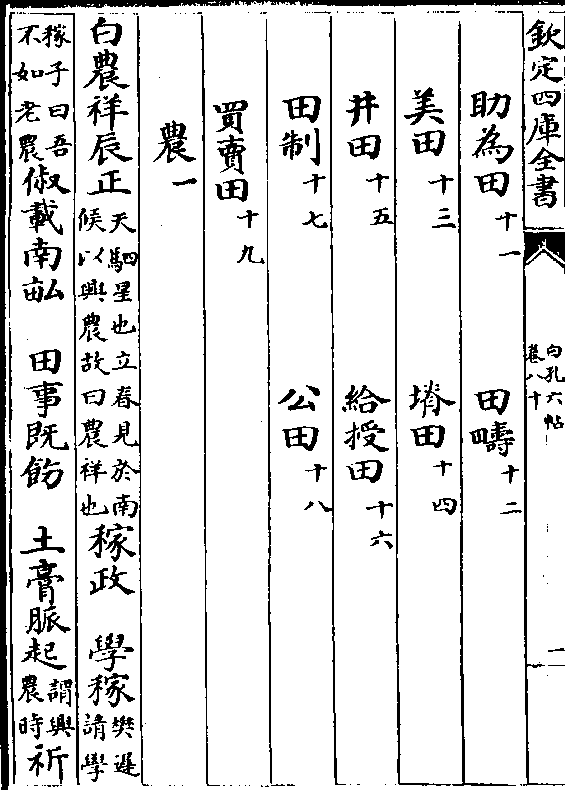 欽定四庫全書 白孔六帖 卷八十 一
助為田十一 田疇十二
美田十三 塉田十四
井田十五 給授田十六
田制十七 公田十八
買賣田十九
農一
白農祥辰正天駟星也立春見於南候以興農故曰農祥也 稼政 學稼樊遲請學
稼子曰吾不如老農俶載南畝 田事既飭 土膏脈起謂興農時祈